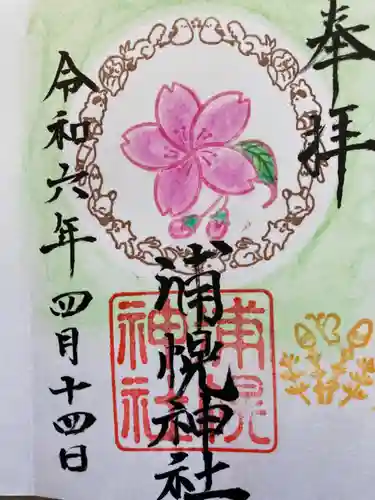 奉拝
浦幌神社
浦幌神社
令和六年四月十四日